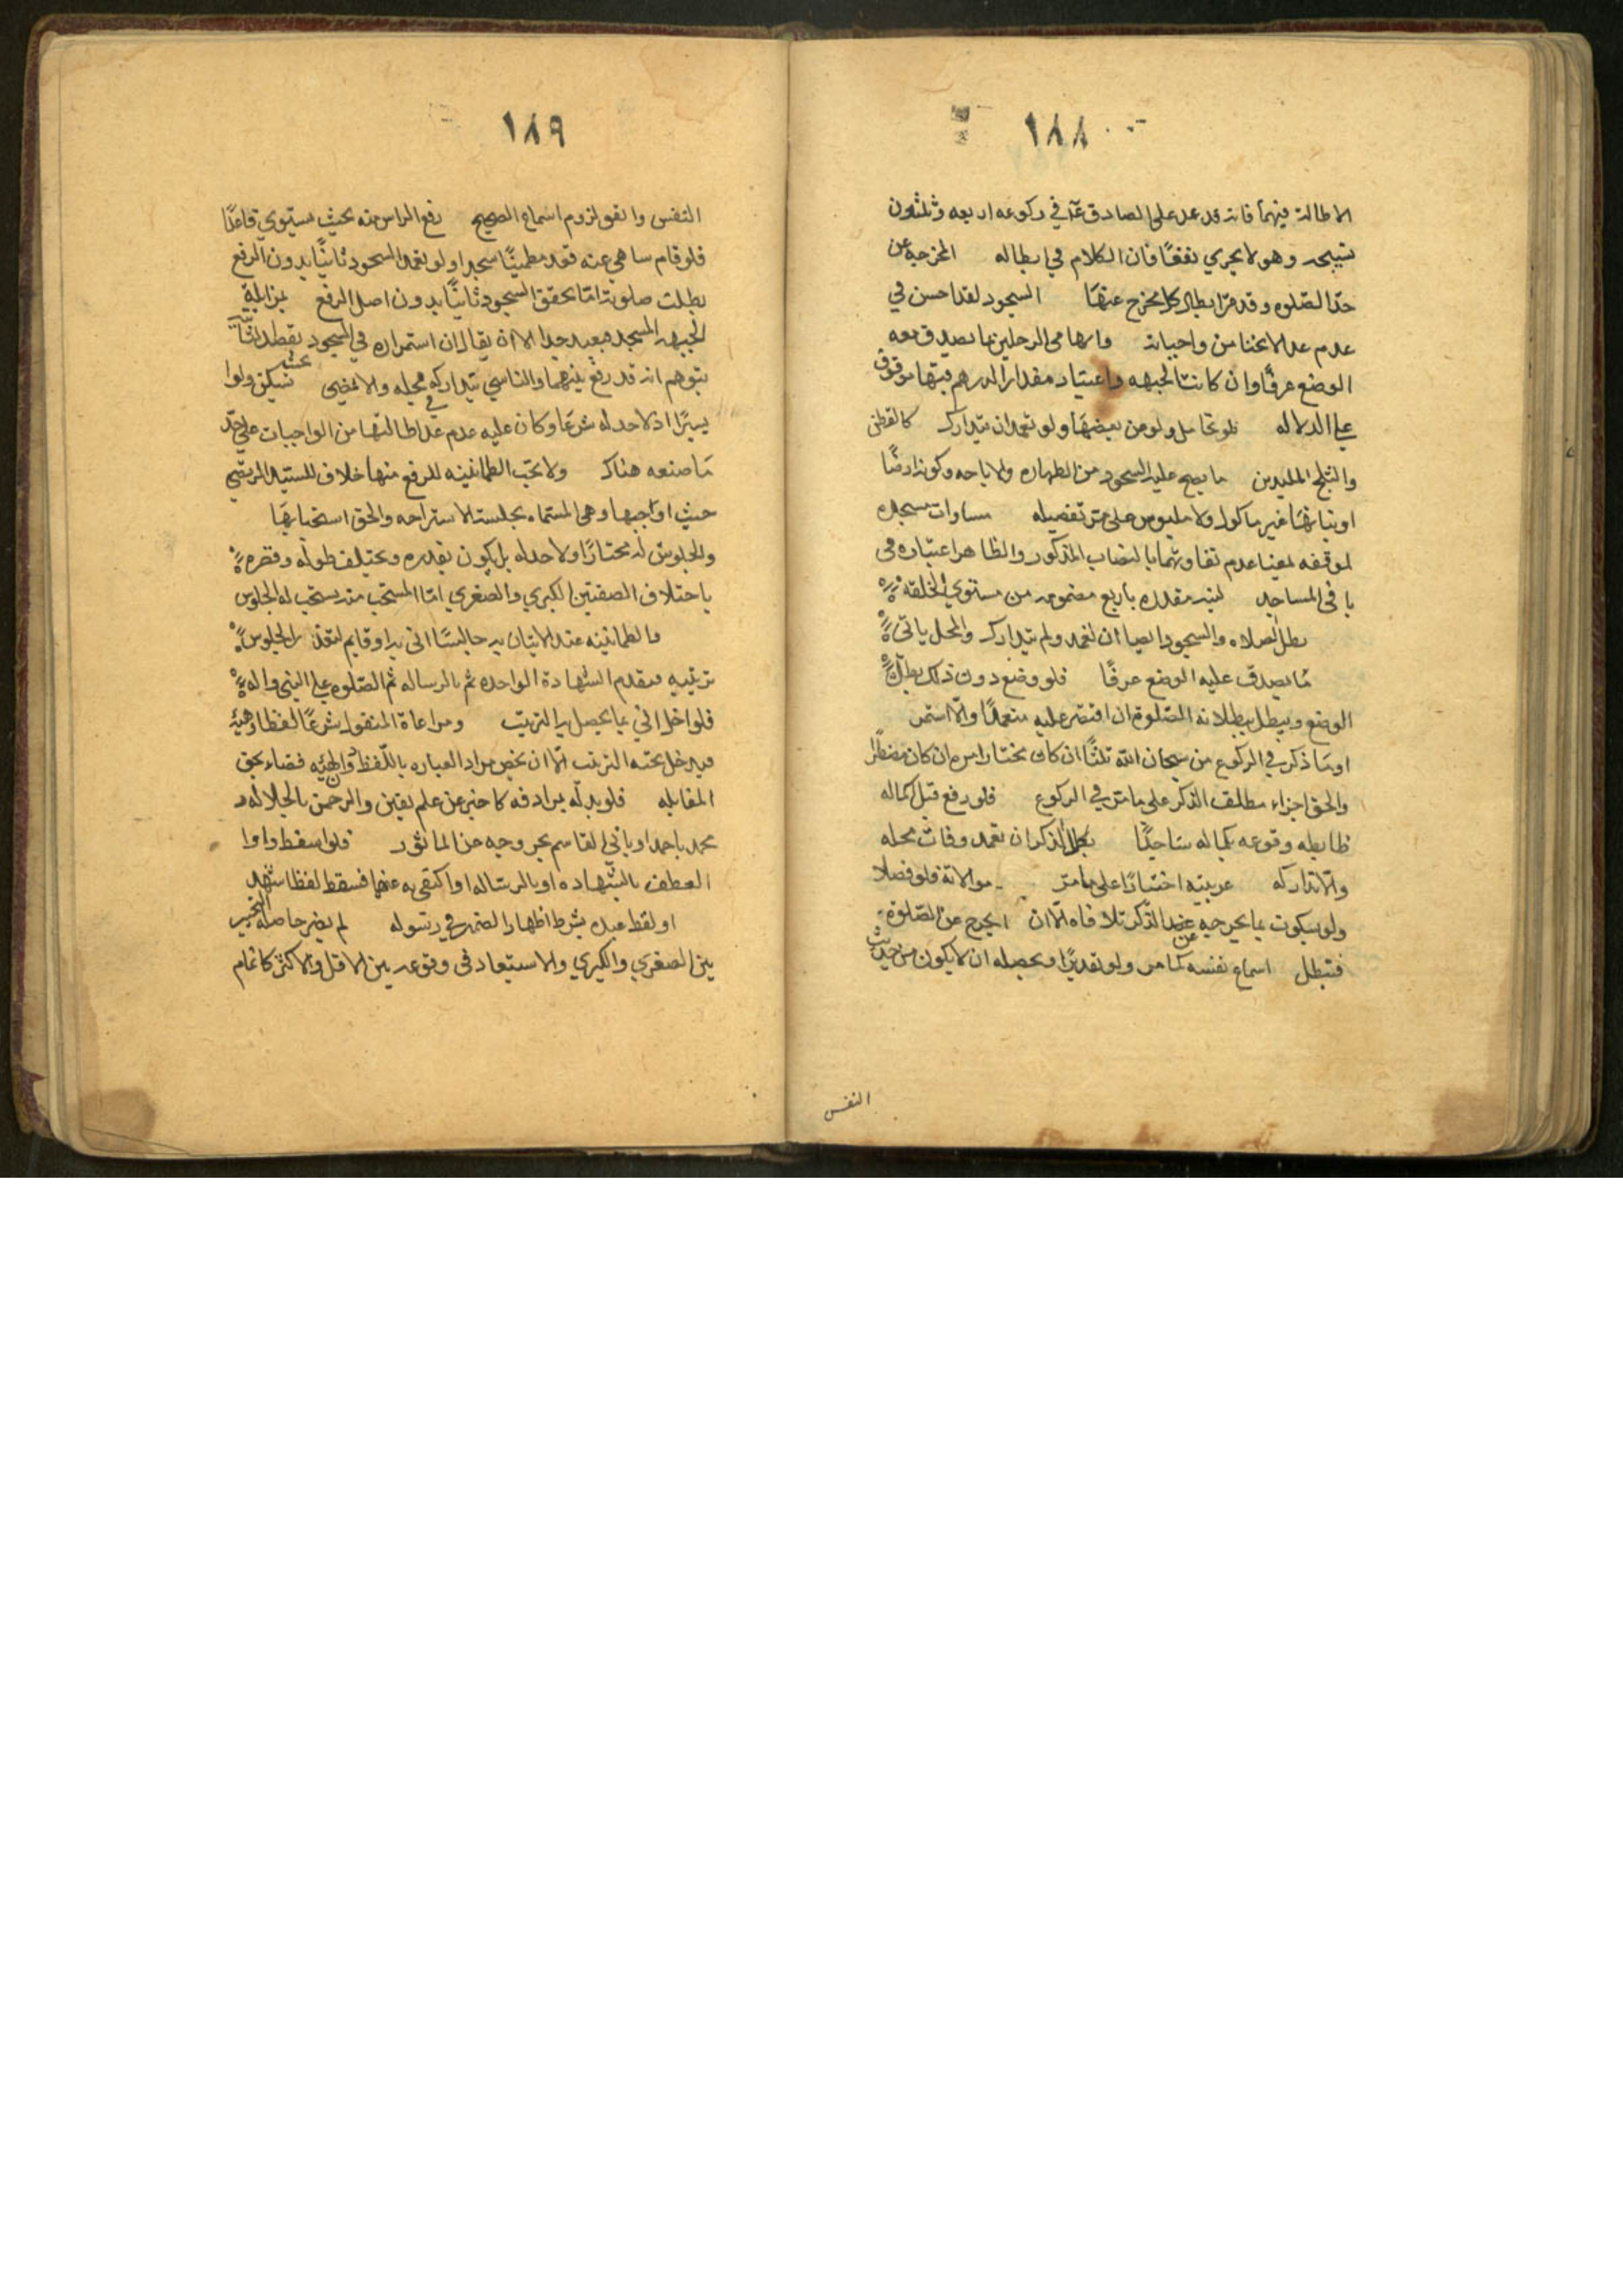 ١٨٨
الاطالة فيهما فانه قد عد على الصادق ع في ركوعه اربعه وثلثون
تسبيحه وهو لا يجري نفعًا فان الكلام في ابطاله المخرجة عن
حد الصلوه وقد مر ابطال كل مخرج عنها السجود لقد احسن في
عدم عد الانحنا من واجباته وابهامي الرجلين بما يصدق معه
الوضع عرفًا وان كانت الجبهه واعتبار مقدار الدرهم فيها موقوف
على الدلاله فلو تحامل ولو من بعضها ولو تعمد ان يتدارك كالقطن
والثلج الملبدين ما يصح عليه السجود من الطهاره والاباحه وكونه ارضًا
او نباتها غير ماكول ولا ملبوس على مر تفصيله مساوات مسجده
لموقفه بمعنا عدم تفاوتهما بالنصاب المذكور والظاهر اعتباره في
باقي المساجد لبنه مقدره باربع مضمومه من مستوي الخلقه
بطل الصلاه والسجود ايضا ان تعمد ولم يتدارك والمحل ياتي
ما يصدق عليه الوضع عرفًا فلو وضع دون ذلك بطل
الوضع ويبطل ببطلانه الصلوة ان اقتصر عليه متعمدًا والّا استمر
او ما ذكر في الركوع من سبحان الله ثلثًا ان كان مختارا مره ان كان مضطرا
والحق اجزاء مطلق الذكر على ما مر في الركوع فلو رفع قبل اكماله
وقوعه بكماله ساجدًا بطل الذكر ان تعمد وفات محله
والّا تداركه عربيته اختيارًا على ما مر موالاته فلو فصلا
ولو بسكوت بما يخرجه عن الذكر تلافاه الّا ان يخرج عن الصلوة
فتبطل اسماع نفسه كما مر ولو تقديرًا ان لا يكون من حيث
النفس
١٨٩
النفس لزوم اسماع الصحيح رفع الراس منه بحيث يستوي قاعدًا
فلو قام ساهي عنه قعد مطمئنًا سجد او لو تعمد السجود ثانيًا بدون الرفع
بطلت صلوته امّا تحقق السجود ثانيًا بدون اصل الرفع بمزايلة
الجبهه المسجد فبعيد جدا الا ان يقال ان استمراره في السجود بقصد ثانيًا
يتوهم انه قد رفع بينهما والناسي يتداركه في محله والا يمضي يسكن عنه ولو
يسيرًا اذ لا حد له شرعًا وكان عليه عدم عد اطالتها من الواجبات على حد
ما صنعه هناك ولا تجب الطمانينه للرفع منها خلاف للسيد المرتضى
حيث اوجبها وهي المسماه بجلسة الاستراحه والحق استحبابها
والجلوس له مختارًا ولا حد له بل يكون بقدره ويختلف طوله وقصره
باختلاف الصفتين الكبرى والصغرى امّا المستحب منه يستحب له الجلوس
والطمانينه عند الاتيان به جالسًا اتى به او قايم لتعذر الجلوس
ترتيبه فيقدم الشهادة الواحده ثم بالرساله ثم الصلوه على النبي واله
فلو اخل اتي بما يحصل به الترتيب ومراعاة المنقول شرعًا لفظًا وهيئة
فيدخل تحته الترتيب الّا ان نخص مراد العباره باللفظ والهيئه قضاء بحق
المقابله فلو بدله بمرادفه كاخبر عن علم يقين والرحمن بالجلاله و
محمد باحمد او بابي القاسم بخروجه من الماثور فلو اسقط واوا
العطف بالشهاده او بالرساله او اكتفى به عنهما فسقط لفظ اشهد
او لفظ عبده بشرط اظهار الضمير في رسوله لم يضر حاصله التخيير
بين الصغرى والكبرى والاستبعاد في وقوعه بين الاقل والاكثر كاتمام